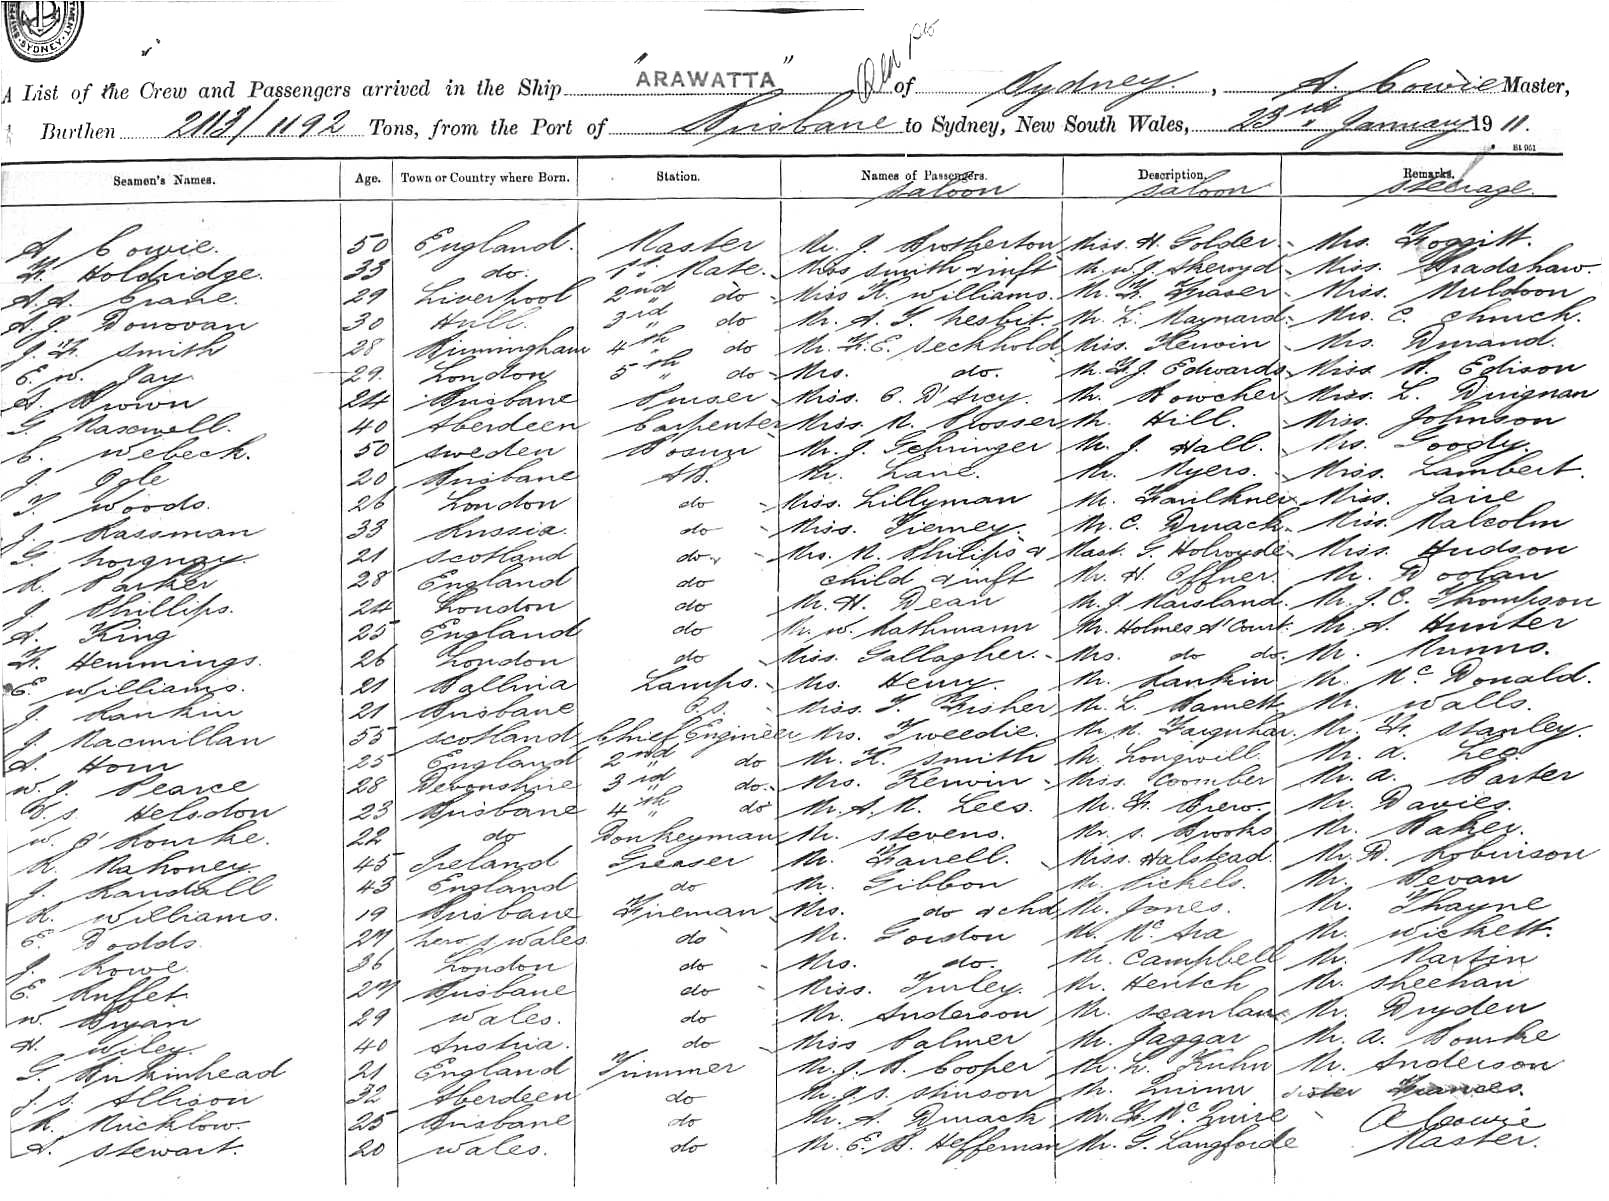 SYDNEY
A List of the Crew and Passengers arrived in the Ship "ARAWATTA" of Sydney, A. Cowie Master,
Burthen 2113/1192 Tons, from the Port of Brisbane to Sydney, New South Wales, 23rd January 1911.
St 951
Seamen's Names. Age. Town or Country where Born. Station. Names of Passengers. Description. Remarks.
Saloon Saloon Steerage.
A. Cowie. 50 England. Master Mr. J. Brotherton Miss. H. Golder. Mrs. Foggitt.
F. Holdridge. 33 do. 1st. Mate. Mrs Smith & inft Mr. W. J. Sherwyd Miss. Bradshaw.
A. A. Crane. 29 Liverpool 2nd " do Miss K. Williams. Mr. F. Fraser Miss. Muldoon
A. J. Donovan 30 Hull. 3rd " do Mr. A. T. Nesbit. Mr. L. Maynard. Mrs. C. Church.
J. F. Smith 28 Birmingham 4th " do Mr. F. E. Seckhold Miss. Kerwin Mrs. Durand.
E. W. Jay. 29. London 5th " do Mrs. do. Mr. F. J. Edwards Miss. B. Edison
A. Brown 24 Brisbane Purser Miss. C. D'Arcy. Mr. Bowcher Miss. L. Duignan
G. Maxwell. 40 Aberdeen Carpenter Miss. M. Prosser Mr. Hill. Miss. Johnson
C. Webeck. 50 Sweden Bosun Mr. J. Gehringer Mr. J. Hall. Mrs. Goody.
J. Ogle 20 Brisbane AB. Mr. Lane. Mr. Myers. Miss. Lambert.
T. Woods. 26 London do Miss. Lillyman Mr. Faulkner Miss. Jane
J. Rassman 33 Russia. do Miss. Tierney. Mr. C. Durack. Miss. Malcolm
G. 21 Scotland do Mrs. M. Philips & Mast. G. Holroyde Miss. Hudson
R. Parker 28 England do child & inft Mr. H. Offner. Mr. Doolan
J. Phillips. 24 London do Mr. H. Dean Mr. J. Marsland. Mr. J. C. Thompson
A. King 25 England do Mr. W. Rathmann Mr. Holmes A'Court. Mr. A. Hunter
F. Hemmings. 26 London do Miss. Gallagher. Mrs. do do. Mr. Munns.
E. Williams. 21 Ballina Lamps. Mrs. Henry. Mr. Rankin Mr. McDonald.
J. Rankin 21 Brisbane O.S. Miss. T. Fisher Mr. L. Barnett Mr. Walls.
J. Macmillan 55 Scotland Chief Engineer Mrs. Tweedie. Mr. M. Farquhar. Mr. F. Stanley.
A. Horn 25 England 2nd " do Mr. K. Smith Mr. Longwill. Mr. A. Lee.
W. J. Pearce 28 Devonshire 3rd " do. Mrs. Kerwin Miss. Coomber Mr. A. Barter
B. S. Helsdon 23 Brisbane 4th " do Mr. A. M. Lees. Mr. F. Brew. Mr. Davies.
W. O'Rourke. 22 do Donkeyman Mr. Stevens. Mr. S. Brooks Mr. Baker.
M. Mahoney. 45 Ireland Greaser Mr. Farrell. Miss. Halstead. Mr. D. Robinson
J. Randall 43 England do Mr. Gibbon Mr. Pickels. Mr. Bevan
R. Williams. 19 Brisbane Fireman Mrs. do & chd Mr. Jones. Mr. Thayne
E. Dodds. 27 New S Wales do Mr. Gordon Mr. McAra Mr. Wickett.
J. Rowe. 36 London do Mrs. do. Mr. Campbell Mr. Martin
E. Ruffet. 27 Brisbane do Miss. Turley. Mr. Hentch Mr. Sheehan
W. Bryan 29 Wales. do Mr. Anderson Mr. Scanlan Mr. Dryden
H. Wiley. 40 Austria. do Miss Palmer Mr. Jaggar Mr. A. Bourke
G. Birkinhead 21 England Trimmer Mr. J. B. Cooper Mr. L. Kuhn Mr. Anderson
J. S. Allison 32 Aberdeen do Mr. J. S. Stinson Mr. Quinn Sister Frances.
M. Mucklow. 25 Brisbane do Mr. A. Durack Mr. F. McGuire A Cowie
A. Stewart. 20 Wales. do Mr. E. B. Heffernan Mr. G. Langforde Master.